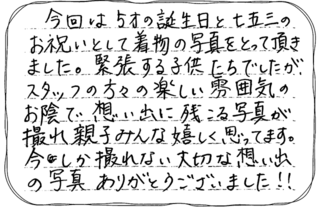 今回は5才の誕生日と七五三の
お祝いとして着物の写真をとって頂き
ました。緊張する子供たちでしたが
スタッフの方々の楽しい雰囲気の
お陰で、想い出に残こる写真が
撮れ親子みんな嬉しく思ってます。
今しか撮れない大切な想い出
の写真 ありがとうございました!!